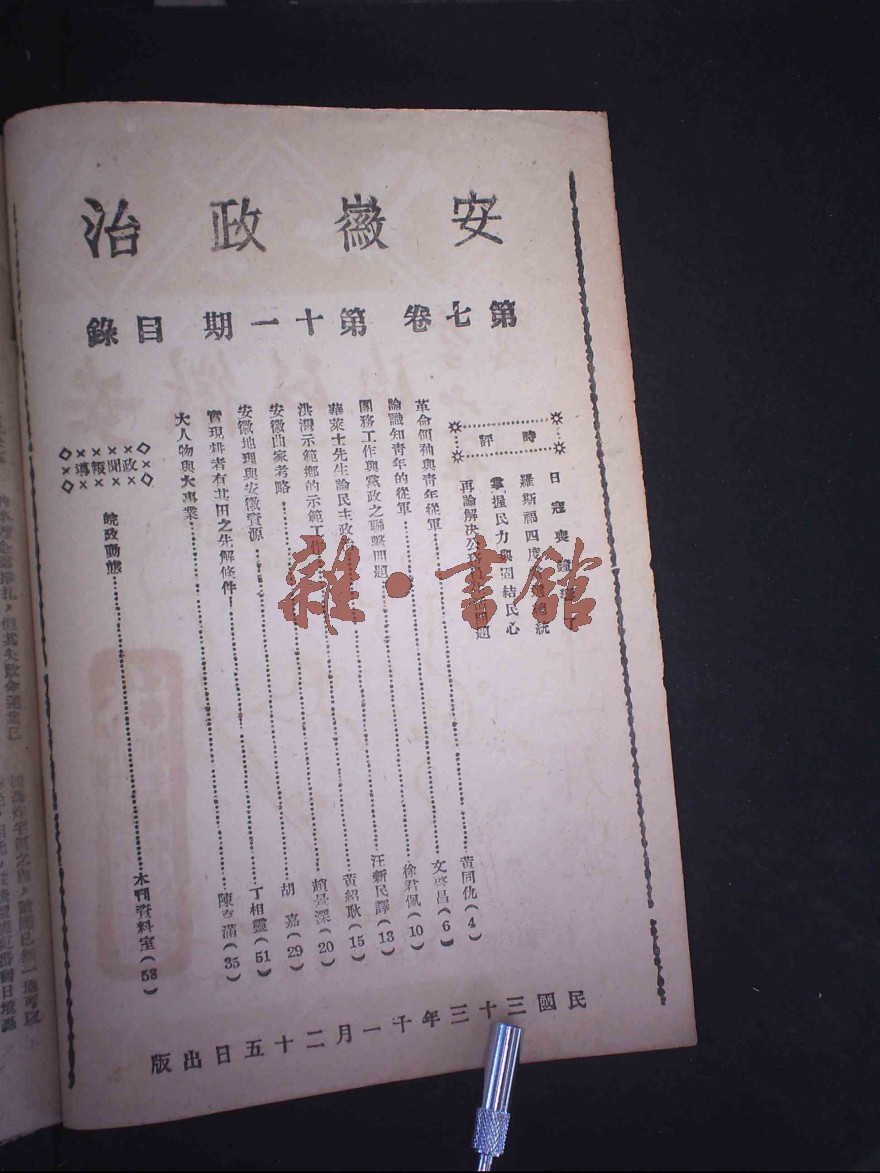 安徽政治
第七卷 第十一期 目錄
時評
日寇與
羅斯福四度 總統
掌握民力與固結民心
再論解決公 問題
革命領袖與青年從軍……黃同仇(4)
論識知青年的從軍……文啓昌(6)
團務工作與黨政之聯繫問題……徐君佩(10)
華萊士先生論民主政……汪新民譯(13)
洪灣示範鄉的示範工作……黃紹耿(15)
安徽曲家考略……趙景深(20)
安徽地理與安徽資源……胡 嘉(29)
實現耕者有其田之先解條件……丁相靈(51)
大人物與大事業……陳 蒲(35)
政聞報導
皖政動態……本刊資料室(58)
民國三十三年十一月二十五日出版
雜·書館
掙扎，但其失敗命運業已